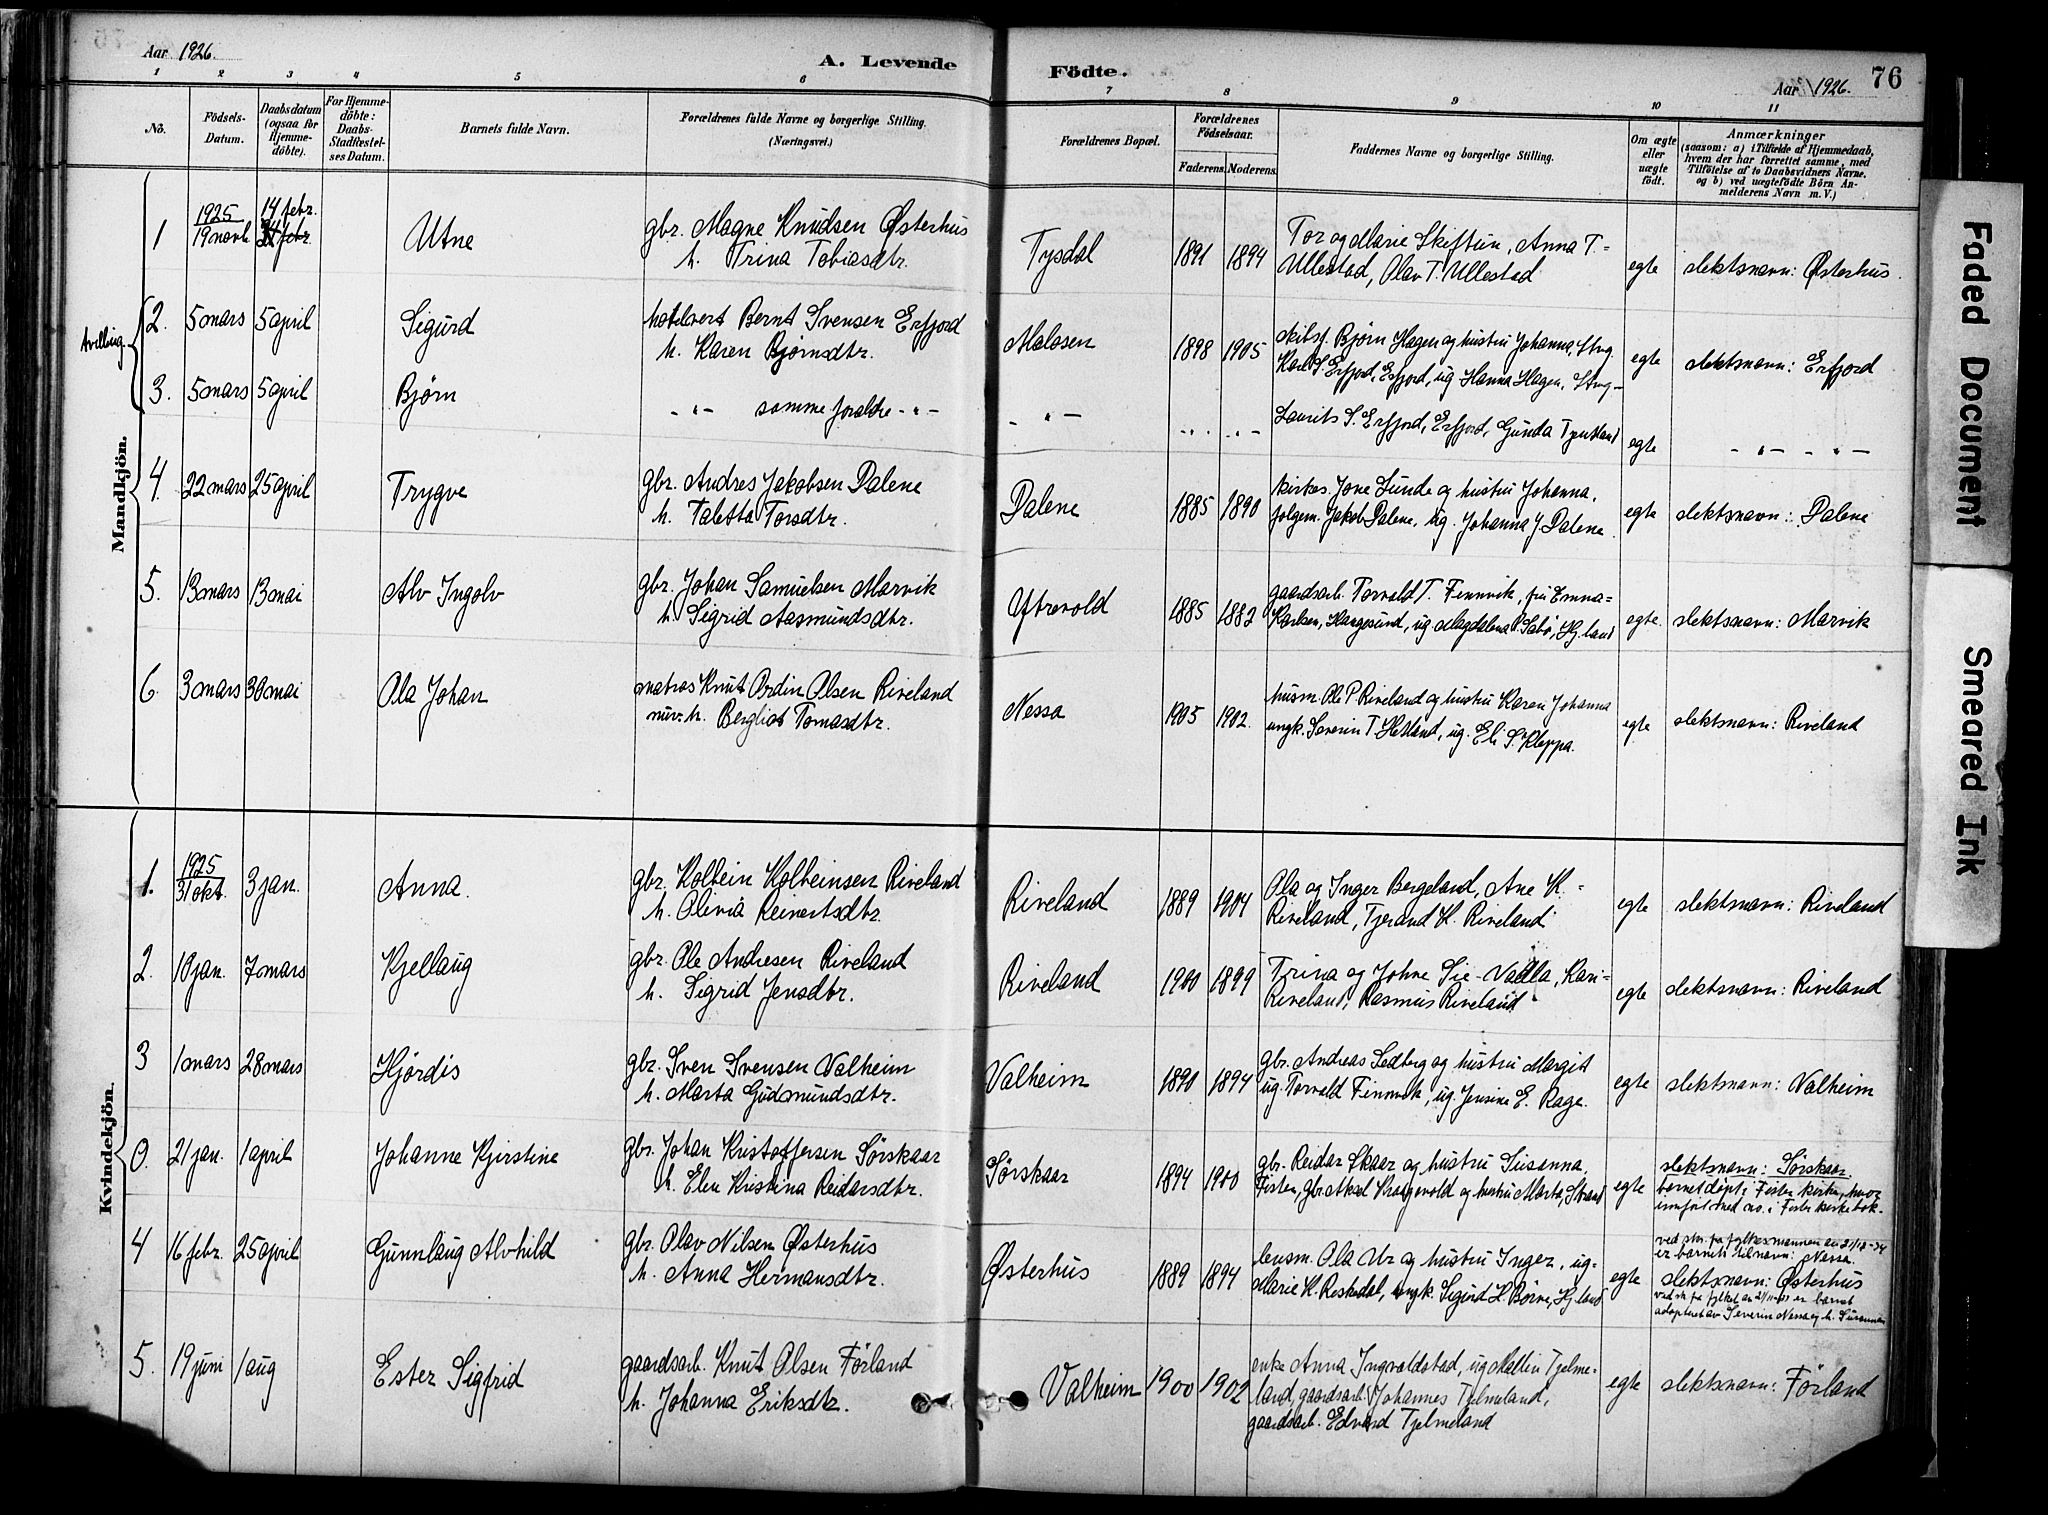 Aar 1926.
A. Levende Födte.
Aar 1926.
76
1 2 3 4 5 6 7 8 9 10 11
No.
Födsels-Datum.
Daabsdatum (ogsaa for Hjemme-döbte).
For Hjemme-döbte: Daabs-Stadfæstel-ses Datum.
Barnets fulde Navn.
Forældrenes fulde Navne og borgerlige Stilling. (Næringsvei.)
Forældrenes Bopæl.
Forældrenes Födselsaar.
Faderens. Moderens.
Faddernes Navne og borgerlige Stilling.
Om ægte eller uægte födt.
Anmærkninger
(saasom: a) i Tilfælde af Hjemmedaab, hvem der har forrettet samme, med Tilföielse af to Daabsvidners Navne. og b) ved uægtefödte Börn An-melderens Navn m.V.)
Mandkjön.
1 1925 19 novb. 14 febr. Utne gbr. Magne Knudsen Østerhus Tysdal 1891 1894 Tor og Marie Skiftun, Anna T- egte slektsnavn: Østerhus.
h. Trina Tobiasdtr. Ullestad, Olav T. Ullestad
tvilling.
2. 5 mars 5 april Sigurd hotelvert Bernt Svensen Erfjord Malosen 1898 1905 skibsf. Bjørn Hagen og hustru Johanna, Stvg. egte slektsnavn: Erfjord
h. Karen Bjørnsdtr. Karl S. Erfjord, Erfjord, ug Hanna Hagen, Stvg-
3. 5 mars 5 april Bjørn -"- samme foraldre -"- -"- -"- -"- Laurits S. Erfjord, Erfjord, Gunda egte -"- -"-
4. 22 mars 25 april Trygve gbr. Andres Jakobsen Dalene Dalene 1885 1890 kirkes. Jone Lunde og hustru Johanna, egte slektsnavn: Dalene
h. Taletta Torsdtr. folgem. Jakob Dalene, ug. Johanna J Dalene
5. 13 mars 13 mai Alv Ingolv gbr. Johan Samuelsen Marvik Ytrevold 1885 1882 gaardsarb. Torvald T. Finnvik, fru Emna- egte. slektsnavn: Marvik
h. Sigrid Aasmundsdtr. Karlsen, Haugesund, ug Magdalena Sabø, Hj.land
6. 3 mars 30 mai Ola Johan matros Knut Ordin Olsen Riveland Nessa 1905 1902. husm. Ole P. Riveland og hustru Karen Johanna egte slektsnavn: Riveland
nuv. h. Bergliot Tomasdtr. ungk. Severin T. Hetland, ug. Eli S. Kleppa.
Kvindekjön.
1. 1925 31 okt. 3 jan. Anna. gbr. Kolbein Kolbeinsen Riveland Riveland 1889 1904 Ola og Inger Bergeland, Ane K.- egte slektsnavn: Riveland
h. Olevia Reinertsdtr. Riveland, Tjerand K. Riveland
2. 18 jan. 7 mars Kjellaug gbr. Ole Andresen Riveland Riveland 1900 1899 Trina og Johne Lie-Vadla, Kari- egte slektsnavn: Riveland
h. Sigrid Jensdtr. Riveland, Rasmus Riveland
3 1 mars 28 mars Hjördis gbr. Sven Svensen Valheim Valheim 1890 1894 gbr. Andreas Sedberg og hustru Margit egte slektsnavn: Valheim
h. Marta Gudmundsdtr. ug. Torvald Finnvik, ug. Jensine E. Rage.
0. 21 jan. 1 april Johanne Kjirstine gbr. Johan Kristoffersen Sörskaar Sörskaar 1894 1900 gbr. Reidar Skaar og hustru Susanna, egte slektsnavn: Sørskaar
h. Elen Kristina Reidarsdtr. Fister, gbr. Aksel Kragevold og hustru Marta, Strand barnet döpt i Fister kirke, hvor
indfört med no. i Fister kirkebok.
4 16 febr. 25 april Gunnlaug Alvhild gbr. Olav Nilsen Østerhus Østerhus 1889 1894 lensm. Ola Ur og hustru Inger, ug- egte ved skr. fra fylkesmannen av 21/12-34
h. Anna Hermansdtr. Marie H. Reskedal, ungk. Sigurd H. Börne, Hj.land er barnets tilnavn: Nessa.
slektsnavn: Østerhus
adoptert av Severin Nessa og h. Susanna
5. 19 juni 1 aug Ester Sigfrid gaardsarb. Knut Olsen Förland Valheim 1900 1902 enke Anna Ingvaldstad, ug Mallin Tjelme- egte slektsnavn: Förland
h. Johanna Eriksdtr. land, gaardsarb. Johannes Tjelmeland,
gaardsarb. Edvard Tjelmeland
Faded Document
Smeared Ink